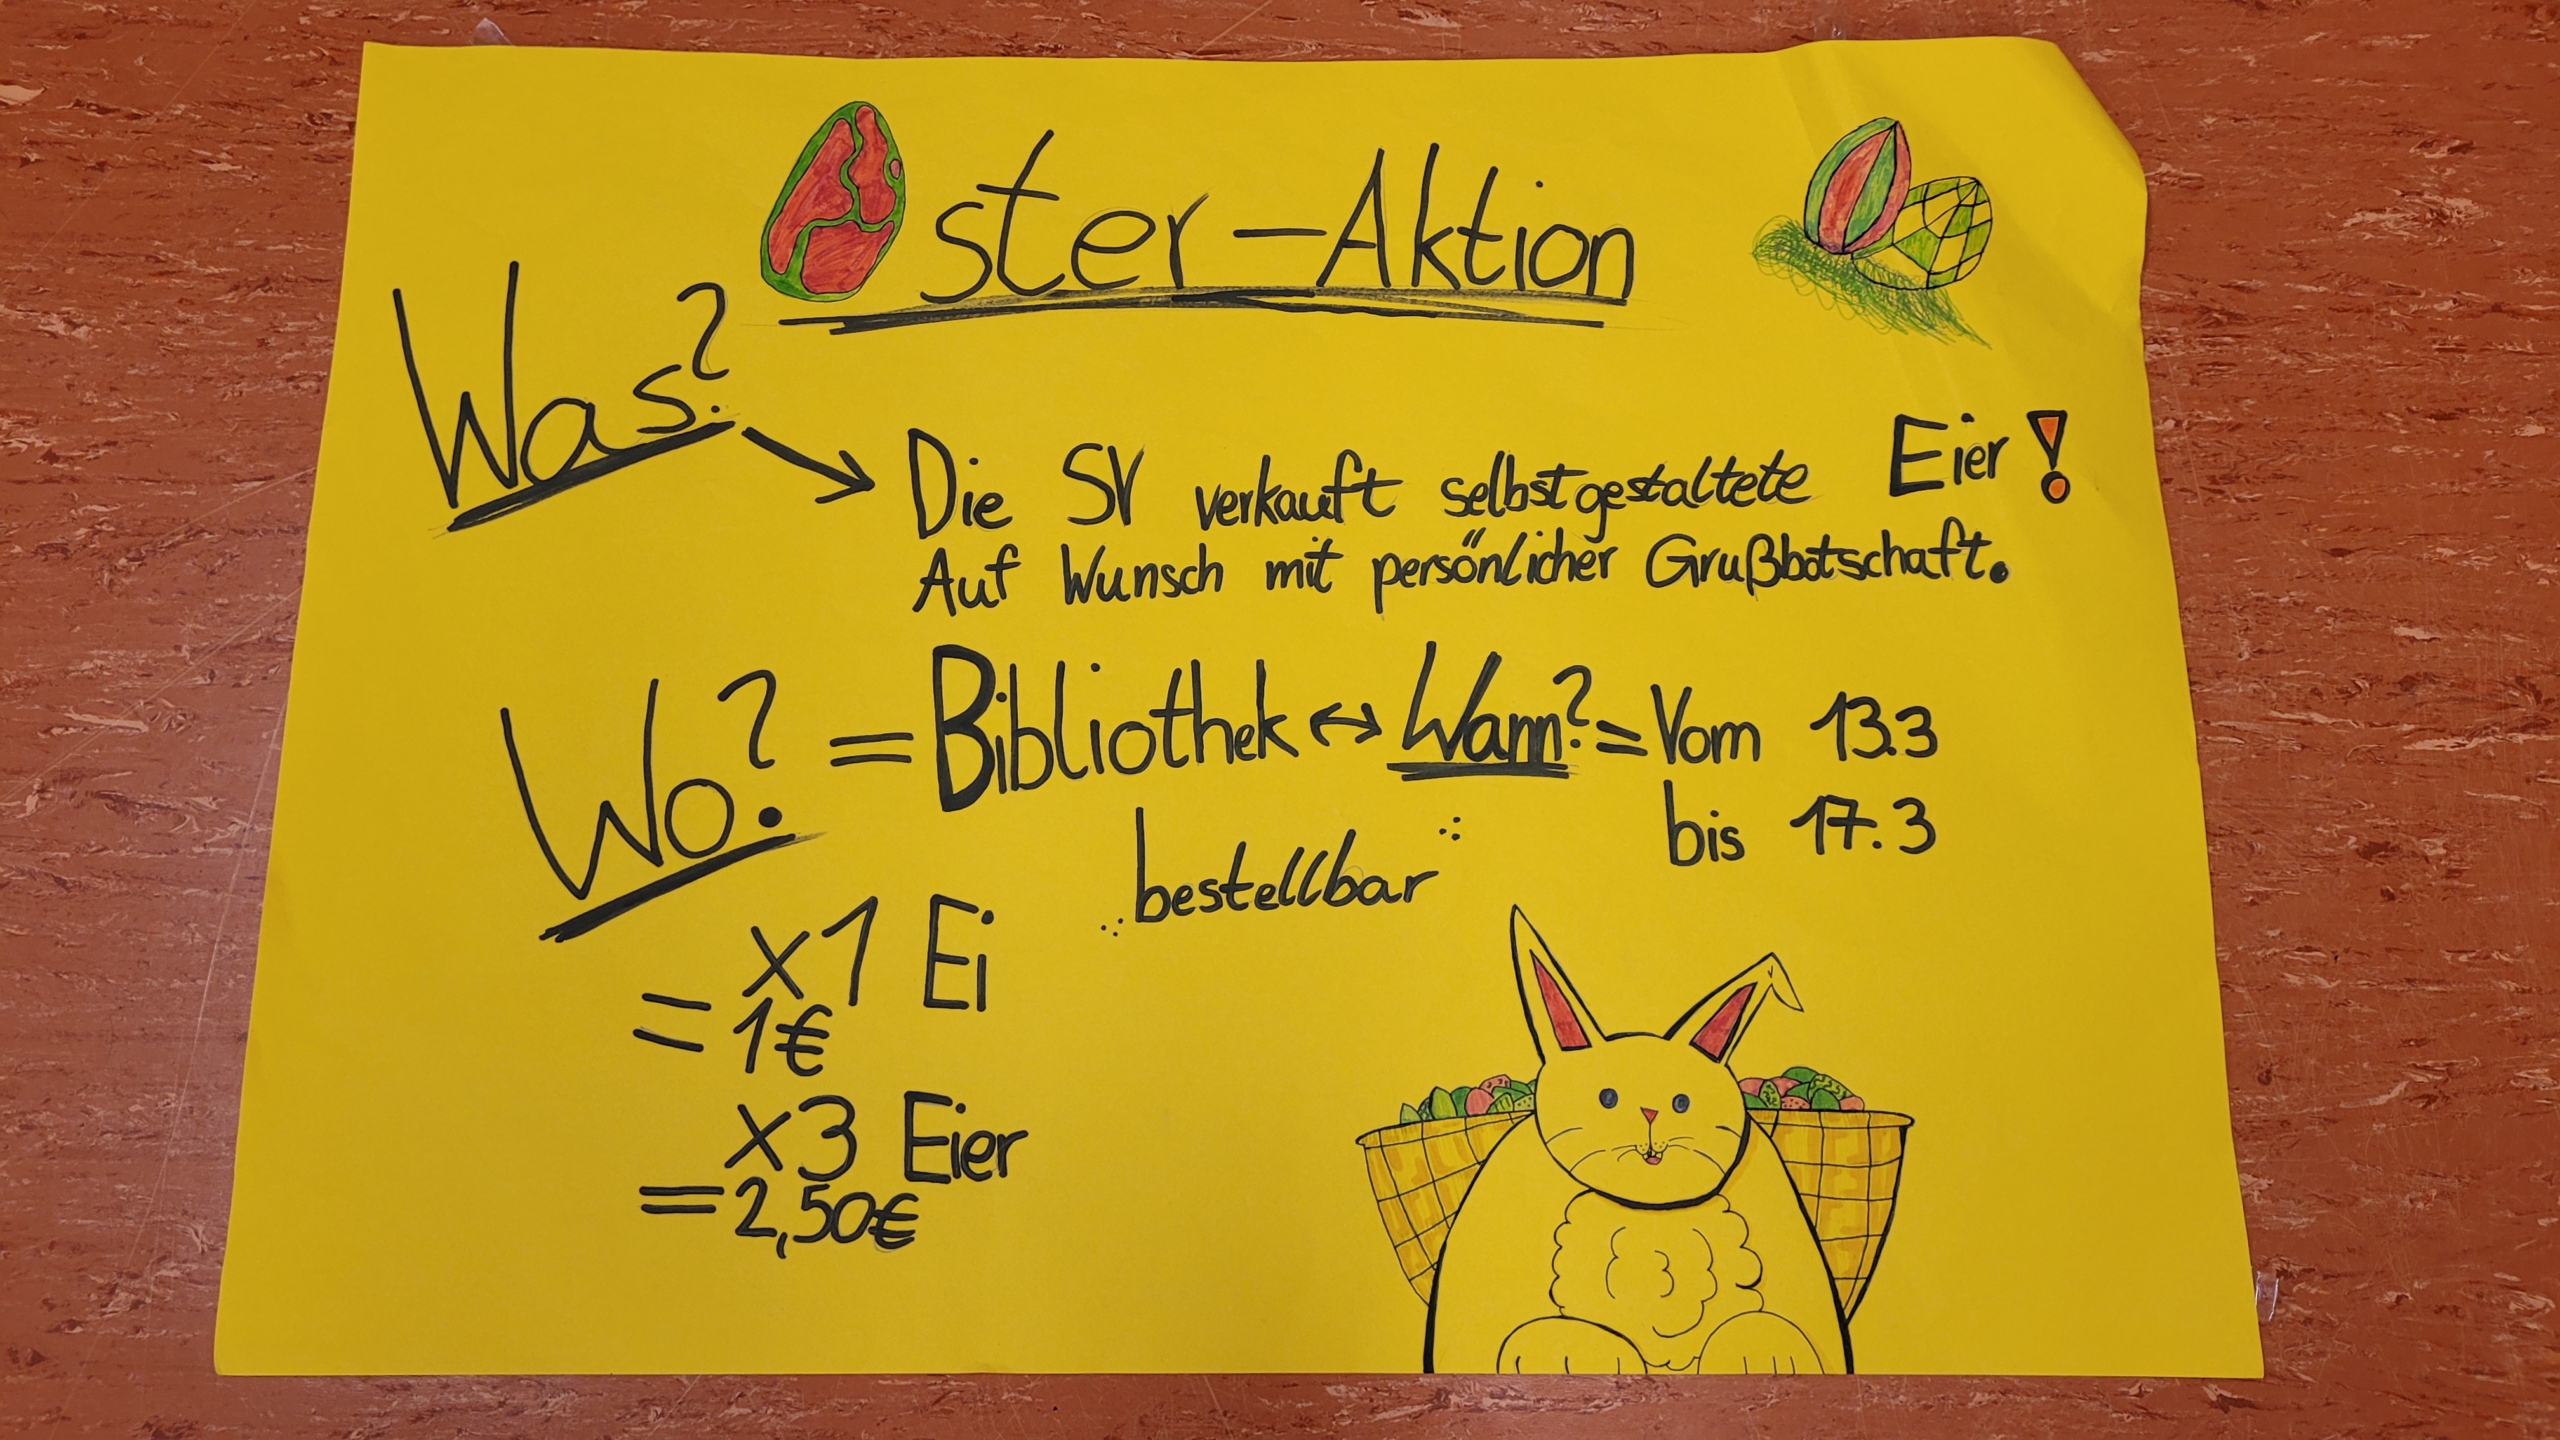 Oster-Aktion
Was?
→ Die SV verkauft selbstgestaltete Eier!
Auf Wunsch mit persönlicher Grußbotschaft.
Wo? = Bibliothek ↔ Wann? = Vom 13.3
bis 17.3
bestellbar
x1 Ei
= 1€
x3 Eier
= 2,50€